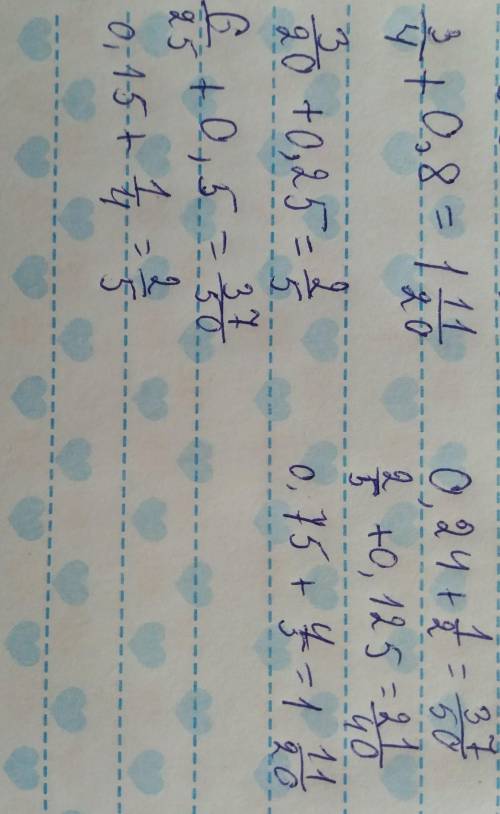 3/4 + 0,8 = 1 11/20
3/20 + 0,25 = 2/5
6/25 + 0,5 = 37/50
0,15 + 1/4 = 2/5
0,24 + 1/2 = 37/50
2/5 + 0,125 = 21/40
0,75 + 4/5 = 1 11/20